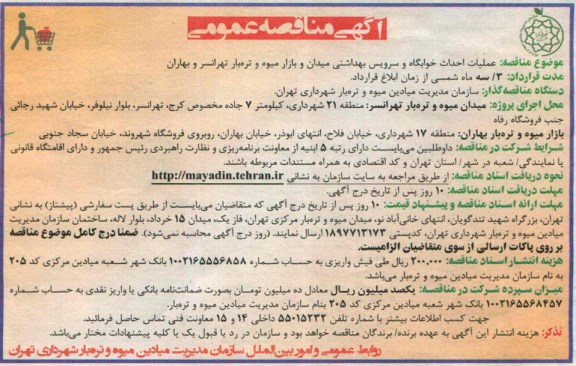 آگهی مناقصه عمومی
موضوع مناقصه: عملیات احداث خوابگاه و سرویس بهداشتی میدان و بازار میوه و تره‌بار تهرانسر و بهاران
مدت قرارداد: ۳/ سه ماه شمسی از زمان ابلاغ قرارداد.
دستگاه مناقصه‌گذار: سازمان مدیریت میادین میوه و تره‌بار شهرداری تهران.
محل اجرای پروژه: میدان میوه و تره‌بار تهرانسر: منطقه ۲۱ شهرداری، کیلومتر ۷ جاده مخصوص کرج، تهرانسر، بلوار نیلوفر، خیابان شهید رجائی
جنب فروشگاه رفاه
بازار میوه و تره‌بار بهاران: منطقه ۱۷ شهرداری، خیابان فلاح، انتهای ابوذر، خیابان بهاران، روبروی فروشگاه شهروند، خیابان سجاد جنوبی
شرایط شرکت در مناقصه: داوطلبین می‌بایست دارای رتبه ۵ ابنیه از معاونت برنامه‌ریزی و نظارت راهبردی رئیس جمهور و دارای اقامتگاه قانونی
یا نمایندگی/ شعبه در شهر/ استان تهران و کد اقتصادی به همراه مستندات مربوطه باشند.
نحوه دریافت اسناد مناقصه: از طریق مراجعه به سایت سازمان به نشانی http://mayadin.tehran.ir
مهلت دریافت اسناد مناقصه: ۱۰ روز پس از تاریخ درج آگهی.
مهلت ارائه اسناد مناقصه و پیشنهاد قیمت: ۱۰ روز پس از تاریخ درج آگهی که متقاضیان می‌بایست از طریق پست سفارشی (پیشتاز) به نشانی
تهران، بزرگراه شهید تندگویان، انتهای خانی‌آباد نو، میدان میوه و تره‌بار مرکزی تهران، فاز یک، میدان ۱۵ خرداد، بلوار لاله، ساختمان سازمان مدیریت
میادین میوه و تره‌بار شهرداری تهران، کدپستی ۱۸۹۷۷۱۳۱۷۳ ارسال نمایند. (روز درج آگهی محاسبه نمی‌شود). ضمنا درج کامل موضوع مناقصه
بر روی پاکات ارسالی از سوی متقاضیان الزامیست.
هزینه انتشار اسناد مناقصه: ۲۰۰,۰۰۰ ریال طی فیش واریزی به حساب شماره ۱۰۰۲۱۶۵۵۵۶۸۵۸ بانک شهر شعبه میادین مرکزی کد ۲۰۵
به نام سازمان مدیریت میادین میوه و تره‌بار می‌باشد.
میزان سپرده شرکت در مناقصه: یکصد میلیون ریال معادل ده میلیون تومان بصورت ضمانت‌نامه بانکی یا واریز نقدی به حساب شماره
۱۰۰۲۱۶۵۵۶۸۴۵۷ بانک شهر شعبه میادین مرکزی کد ۲۰۵ بنام سازمان مدیریت میادین میوه و تره‌بار.
جهت کسب اطلاعات بیشتر با شماره تلفن ۵۵۰۱۵۲۳۲ داخلی ۱۴ و ۱۵ معاونت فنی تماس حاصل فرمائید.
تذکر: هزینه انتشار این آگهی به عهده برنده/ برندگان مناقصه خواهد بود و سازمان در رد یا قبول یک یا کلیه پیشنهادات مختار می‌باشد.
روابط عمومی و امور بین‌الملل سازمان مدیریت میادین میوه و تره‌بار شهرداری تهران